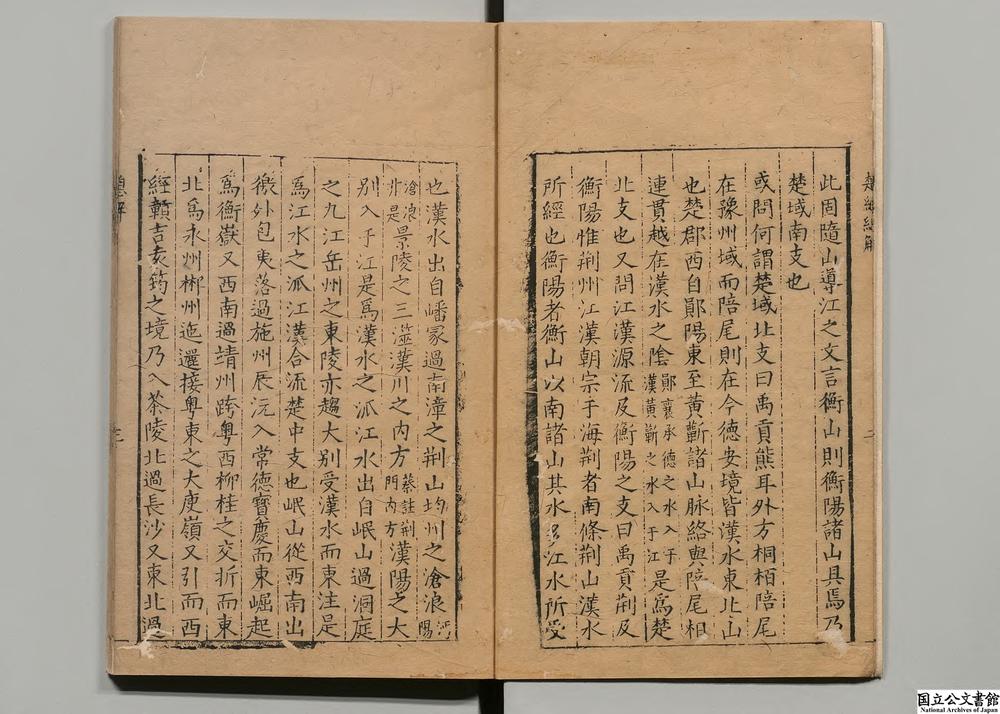 此固隨山導江之文言衡山則衡陽諸山具焉乃
楚域南支也
或問何謂楚域北支曰禹貢熊耳外方桐栢陪尾
在豫州域而陪尾則在今德安境皆漢水東北山
也楚郡西自鄖陽東至黃蘄諸山脉絡與陪尾相
連貫越在漢水之陰鄖襄承德之水入于漢黃蘄之水入于江是爲楚
北支也又問江漢源流及衡陽之支曰禹貢荆及
衡陽惟荆州江漢朝宗于海荆者南條荆山漢水
所經也衡陽者衡山以南諸山其水多江水所受
也漢水出自嶓冢過南漳之荆山均州之滄浪沔陽
滄浪非是景陵之三澨漢川之内方蔡註荆門内方漢陽之大
别入于江是爲漢水之派江水出自岷山過洞庭
之九江岳州之東陵亦趨大别受漢水而東注是
爲江水之派江漢合流楚中支也岷山從西南出
徼外包夷落過施州辰沅入常德寶慶而東崛起
爲衡嶽又西南過靖州跨粵西柳桂之交折而東
北爲永州郴州迤邐接粵東之大庾嶺又引而西
經贛吉袁筠之境乃入茶陵北過長沙又東北過
国立公文書館
National Archives of Japan